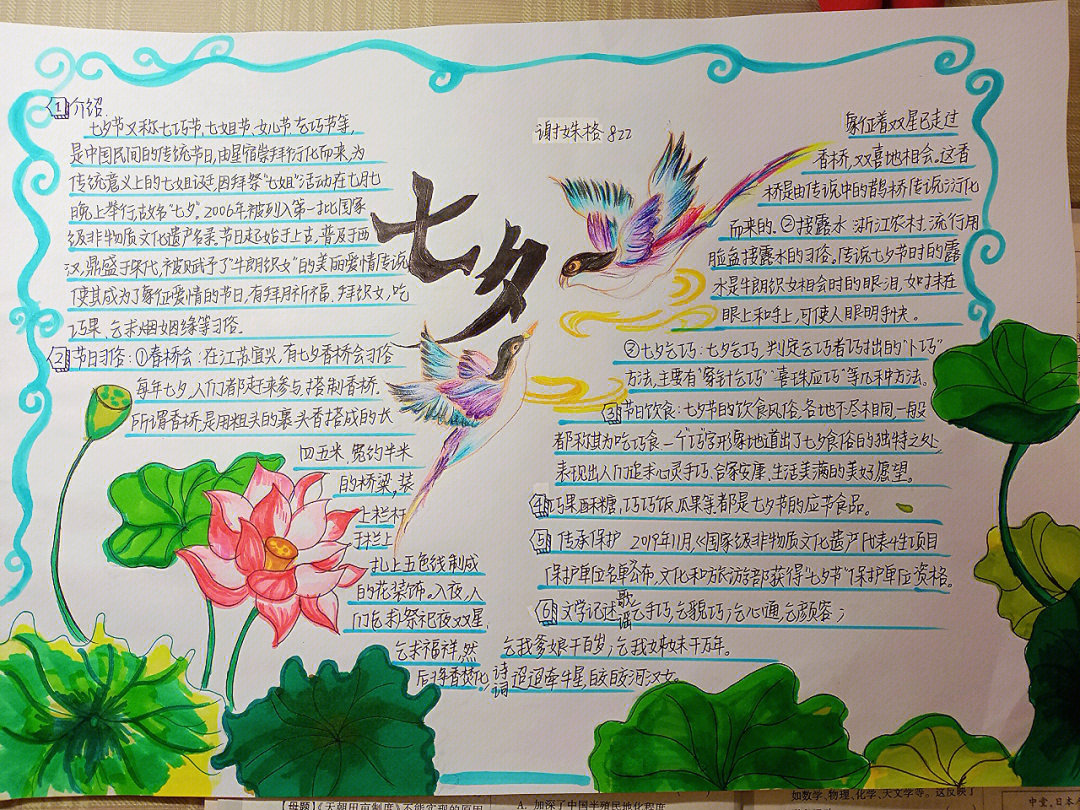 1 介绍
七夕节又称七巧节、七姐节、女儿节、乞巧节等,
是中国民间的传统节日,由星宿崇拜衍化而来,为
传统意义上的七姐诞,因拜祭“七姐”活动在七月七
晚上举行,故名“七夕”。2006年被列入第一批国家
级非物质文化遗产名录。节日起始于上古,普及于西
汉,鼎盛于宋代,被赋予了“牛郎织女”的美丽爱情传说
使其成为了象征爱情的节日,有拜月祈福、拜织女,吃
巧果、乞求姻缘等习俗。
2 节日习俗:①香桥会:在江苏宜兴,有七夕香桥会习俗
每年七夕,人们都赶来参与,搭制香桥.
所谓香桥,是用粗头的裹头香搭成的长
四五米、宽约半米
的桥梁,装
上栏杆
于栏上
扎上五色线制成
的花装饰。入夜,人
们乞求祭祀夜双星,
乞求福祥,然
后将香桥化,
七夕
谢姝格 822
象征着双星已走过
香桥,双喜地相会。这香
桥是由传说中的鹊桥传说衍化
而来的.②接露水:浙江农村,流行用
脸盆接露水的习俗。传说七夕节时的露
水是牛郎织女相会时的眼泪,如抹在
眼上和手上,可使人眼明手快。
②七夕乞巧:七夕乞巧,判定乞巧者巧拙的“卜巧”
方法,主要有“穿针乞巧”“喜珠应巧”等几种方法。
3 节日饮食:七夕节的饮食风俗,各地不尽相同一般
都称其为吃巧食一个“巧”字形象地道出了七夕食俗的独特之处
表现出人们追求心灵手巧、合家安康,生活美满的美好愿望。
4 巧果酥糖,巧巧饭,瓜果等都是七夕节的应节食品。
5 传承保护 2019年11月,《国家级非物质文化遗产代表性项目
保护单位名单》公布,文化和旅游部获得“七夕节”保护单位资格。
6 文学记述 歌谣 乞手巧,乞貌巧;乞心通,乞颜容;
乞我爹娘千百岁;乞我姊妹千万年。
诗词 迢迢牵牛星,皎皎河汉女。
【母题】《天朝田亩制度》不能实现的原因
A. 加深了中国半殖民地化程度
如数学、物理、化学、天文学等。这反映了